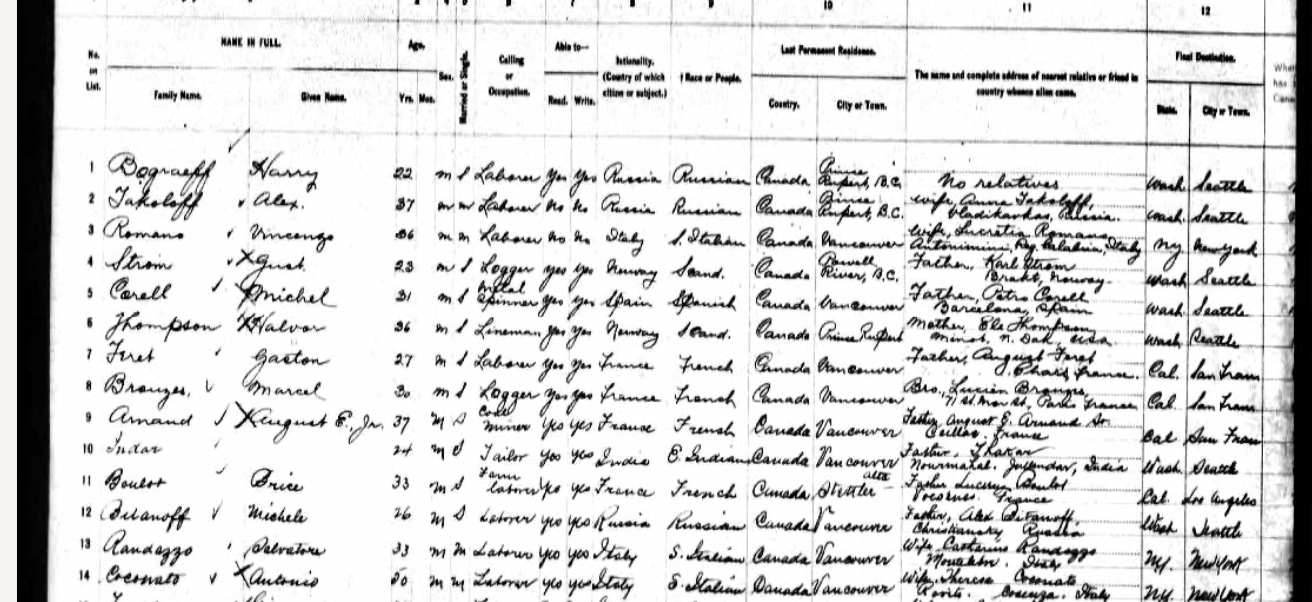 10 11 12
NAME IN FULL. Age. Able to— Last Permanent Residence. Final Destination.
No. on List. Family Name. Given Name. Yrs. Mos. Sex. Married or Single. Calling or Occupation. Read. Write. Nationality. (Country of which citizen or subject.) † Race or People. Country. City or Town. The name and complete address of nearest relative or friend in country whence alien came. State. City or Town.
1 Bograeff Harry 22 m S Laborer yes yes Russia Russian Canada Prince Rupert, B.C. No relatives Wash Seattle
2 Takoloff Alex. 37 m m Laborer No No Russia Russian Canada Prince Rupert, B.C. Wife, Anna Takoloff, Vladikavkas, Russia. Wash. Seattle
3 Romano Vincenzo 36 m m Laborer no no Italy S. Italian Canada Vancouver Wife, Lucretia Romano Reg. Calabria, Italy Ny New York
4 Strom X Gust. 23 m S Logger yes yes Norway Scand. Canada Powell River, B.C. Father, Karl Strom Norway Wash Seattle
5 Corell Michel 31 m S Metal Spinner yes yes Spain Spanish Canada Vancouver Father, Petro Corell Barcelona, Spain Wash. Seattle
6 Thompson X Halvor 36 m S Lineman yes yes Norway Scand. Canada Prince Rupert Mother, Ele Thompson, Minot, N. Dak, USA Wash Seattle
7 Feret Gaston 27 m S Laborer yes yes France French Canada Vancouver Father, August Feret France. Cal. San Fran
8 Brouzes, Marcel 30 m S Logger yes yes France French Canada Vancouver Bro, Lucien Brouzes, Paris France Cal. San Fran
9 Arnaud X August E., Jr. 37 M S Coal miner yes yes France French Canada Vancouver Father August E. Arnaud Sr. France Cal San Fran
10 Indar 24 m S Tailor yes yes India E. Indian Canada Vancouver Father, Thakar Nourmahal. Jullendar, India Wash. Seattle
11 Boulot Brice 33 m S Farm laborer yes yes France French Canada Stettler Alta Father Boulot France Cal. Los Angeles
12 Bitanoff Michele 26 m S Laborer yes yes Russia Russian Canada Vancouver Father, Alex Bitanoff, Russia Wash Seattle
13 Randazzo Salvatore 33 m m Laborer yes yes Italy S. Italian Canada Vancouver Wife Randazzo Italy Ny. New York
14 Coconato X Antonio 50 m m Laborer yes yes Italy S. Italian Canada Vancouver Wife, Theresa Coconato Cosenza. Italy Ny. New York